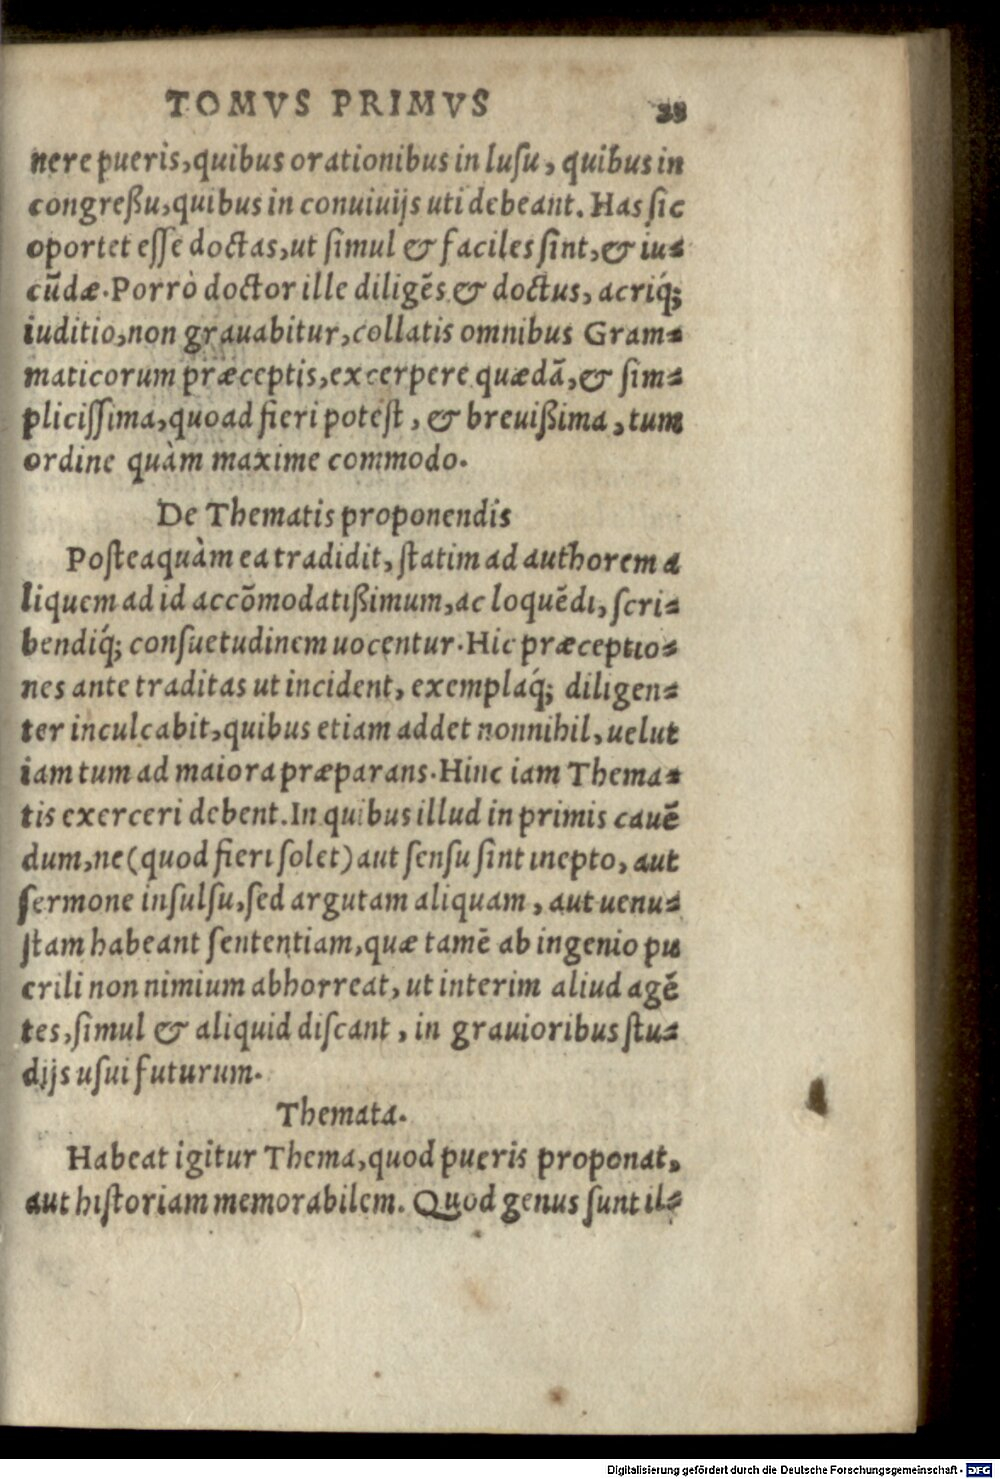 TOMVS PRIMVS 28
nere pueris, quibus orationibus in lusu, quibus in
congreßu, quibus in conuiuijs uti debeant. Has sic
oportet esse doctas, ut simul & faciles sint, & iu-
cūdæ. Porrò doctor ille diligēs & doctus, acriq́;
iuditio, non grauabitur, collatis omnibus Gram-
maticorum præceptis, excerpere quædā, & sim-
plicissima, quoad fieri potest, & breuißima, tum
ordine quàm maxime commodo.
De Thematis proponendis
Posteaquàm ea tradidit, statim ad authorem a
liquem ad id accōmodatißimum, ac loquēdi, scri-
bendiq́; consuetudinem uocentur. Hic præceptio-
nes ante traditas ut incident, exemplaq́; diligen-
ter inculcabit, quibus etiam addet nonnihil, uelut
iam tum ad maiora præparans. Hinc iam Thema-
tis exerceri debent. In quibus illud in primis cauē
dum, ne (quod fieri solet) aut sensu sint inepto, aut
sermone insulsu, sed argutam aliquam, aut uenu-
stam habeant sententiam, quæ tamē ab ingenio pu
erili non nimium abhorreat, ut interim aliud agē
tes, simul & aliquid discant, in grauioribus stu-
dijs usui futurum.
Themata.
Habeat igitur Thema, quod pueris proponat,
aut historiam memorabilem. Quod genus sunt il-
Digitalisierung gefördert durch die Deutsche Forschungsgemeinschaft - DFG